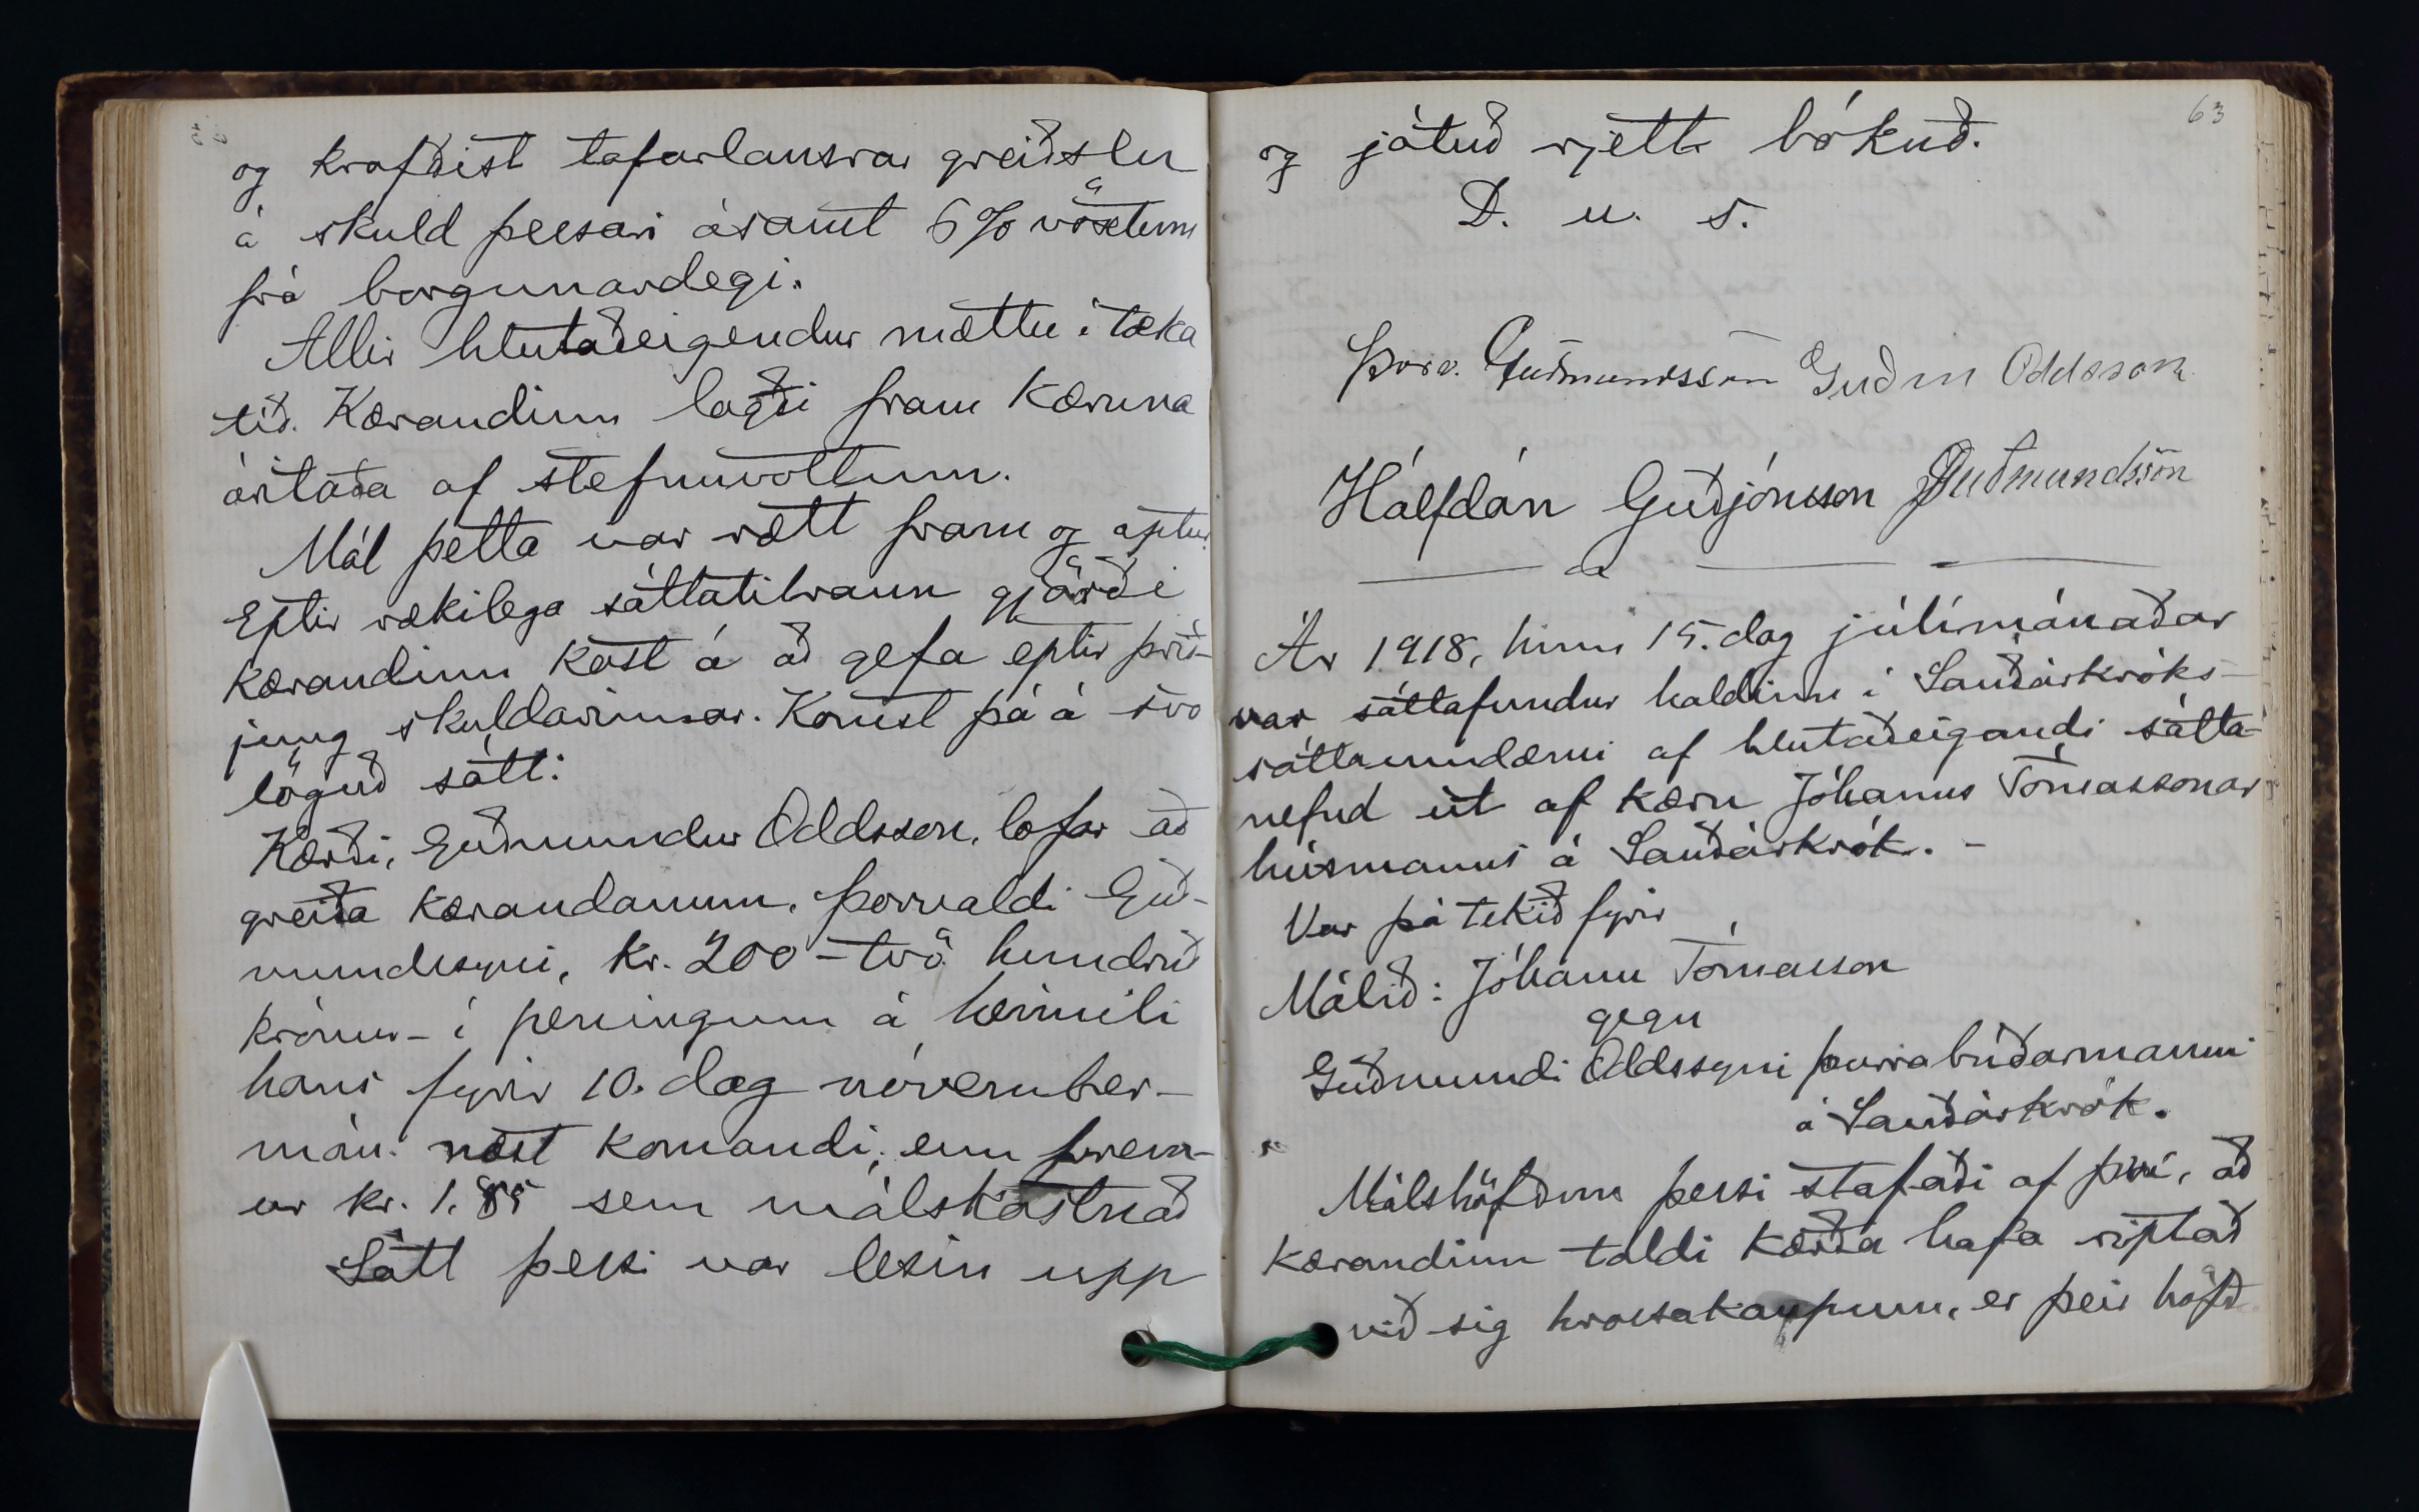 og krafðist tafarlausrar greiðslu
á skuld þessari ásamt 6% vöxtum
frá borgunardegi.
Allir hlutaðeigendur mættu í tæka
tíð. Kærandinn lagði fram kæruna
áritaða af stefnuvottum.
Mál þetta var rætt fram og aptur.
Eptir rækilega sáttatilraun gjörði
kærandinn kost á að gefa eptir þrið-
jung skuldarinnar. Komst þá á svo
löguð sátt:
Kærði, Guðmundur Oddsson, lofar að
greiða kærandanum, Þorvaldi Guð-
mundssyni, kr. 200 - tvö hundruð
krónur - í peningum á heimili
hans fyrir 10. dag nóvember-
mán. næst komandi, enn fremur-
ur kr. 1.85 sem málskostnað
Sátt þessi var lesin upp
63
og játuð rjett bókuð.
D. u. s.
Þorv. Guðmundsson Guðm Oddsson
Hálfdán Guðjónsson Guðmundsson
Ár 1918, hinn 15. dag júlímánaðar
var sáttafundur haldinn í Sauðárkróks-
sáttaumdæmi af hlutaðeigandi sátta-
nefnd út af kæru Jóhanns Tómassonar
húsmanns á Sauðárkrók. -
Var þá tekið fyrir
Málið: Jóhann Tómasson
gegn
Guðmundi Oddssyni þurrabúðarmanni
á Sauðárkrók.
Málshöfðun þessi stafaði af því, að
kærandinn taldi kærða hafa riptað
við sig hrossakaupum, er þeir höfð